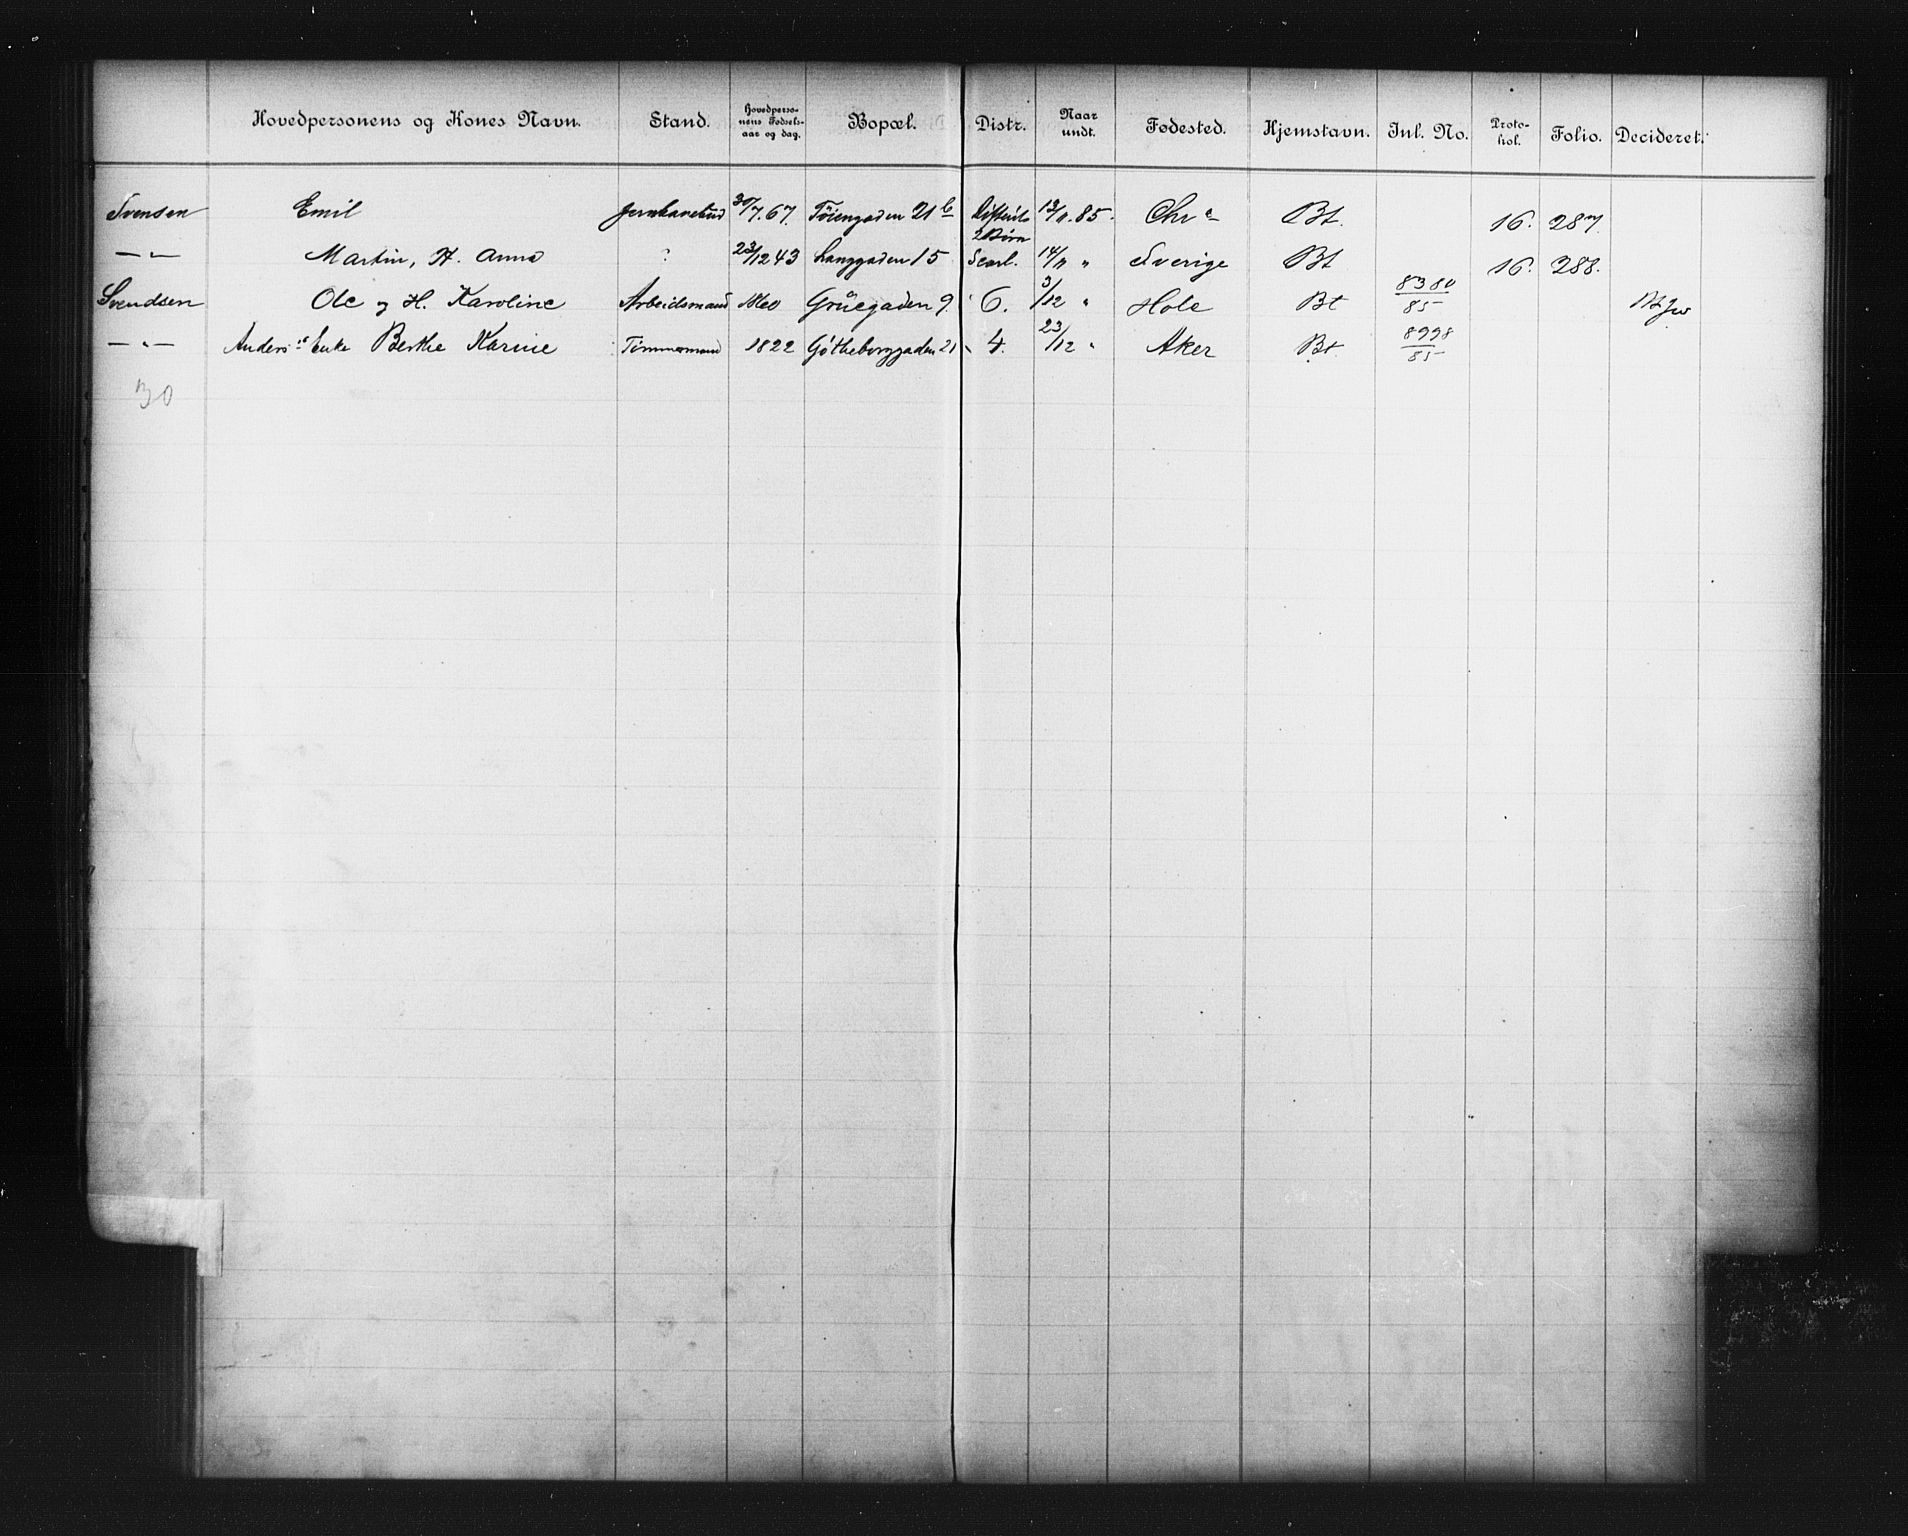 Hovedpersonens og Kones Navn. Stand. Hovedpersonens Fødselsaar og dag. Bopæl. Distr. Naar undt. Fødested. Hjemstavn. Inl. No. Protokol. Folio. Decideret.
Svensen Emil Jernbanebud 30/7.67. Tøiengaden 21 b Difterit 12/11.85. Chr a Bt. 16. 287.
2 Børn
— " — Martin, H. Anna ? 23/12 43 Langgaden 15 Scarl. 14/11 " Sverige Bt 16. 288.
Svendsen Ole og H. Karoline Arbeidsmand Grüegaden 9. 6. 3/12 " Hole Bt 8380/85
— " — Anders's Enke Berthe Karine Tømmermand 1822 Gøtheborggaden 21 4. 23/12 " Aker Bt. 8998/85
30